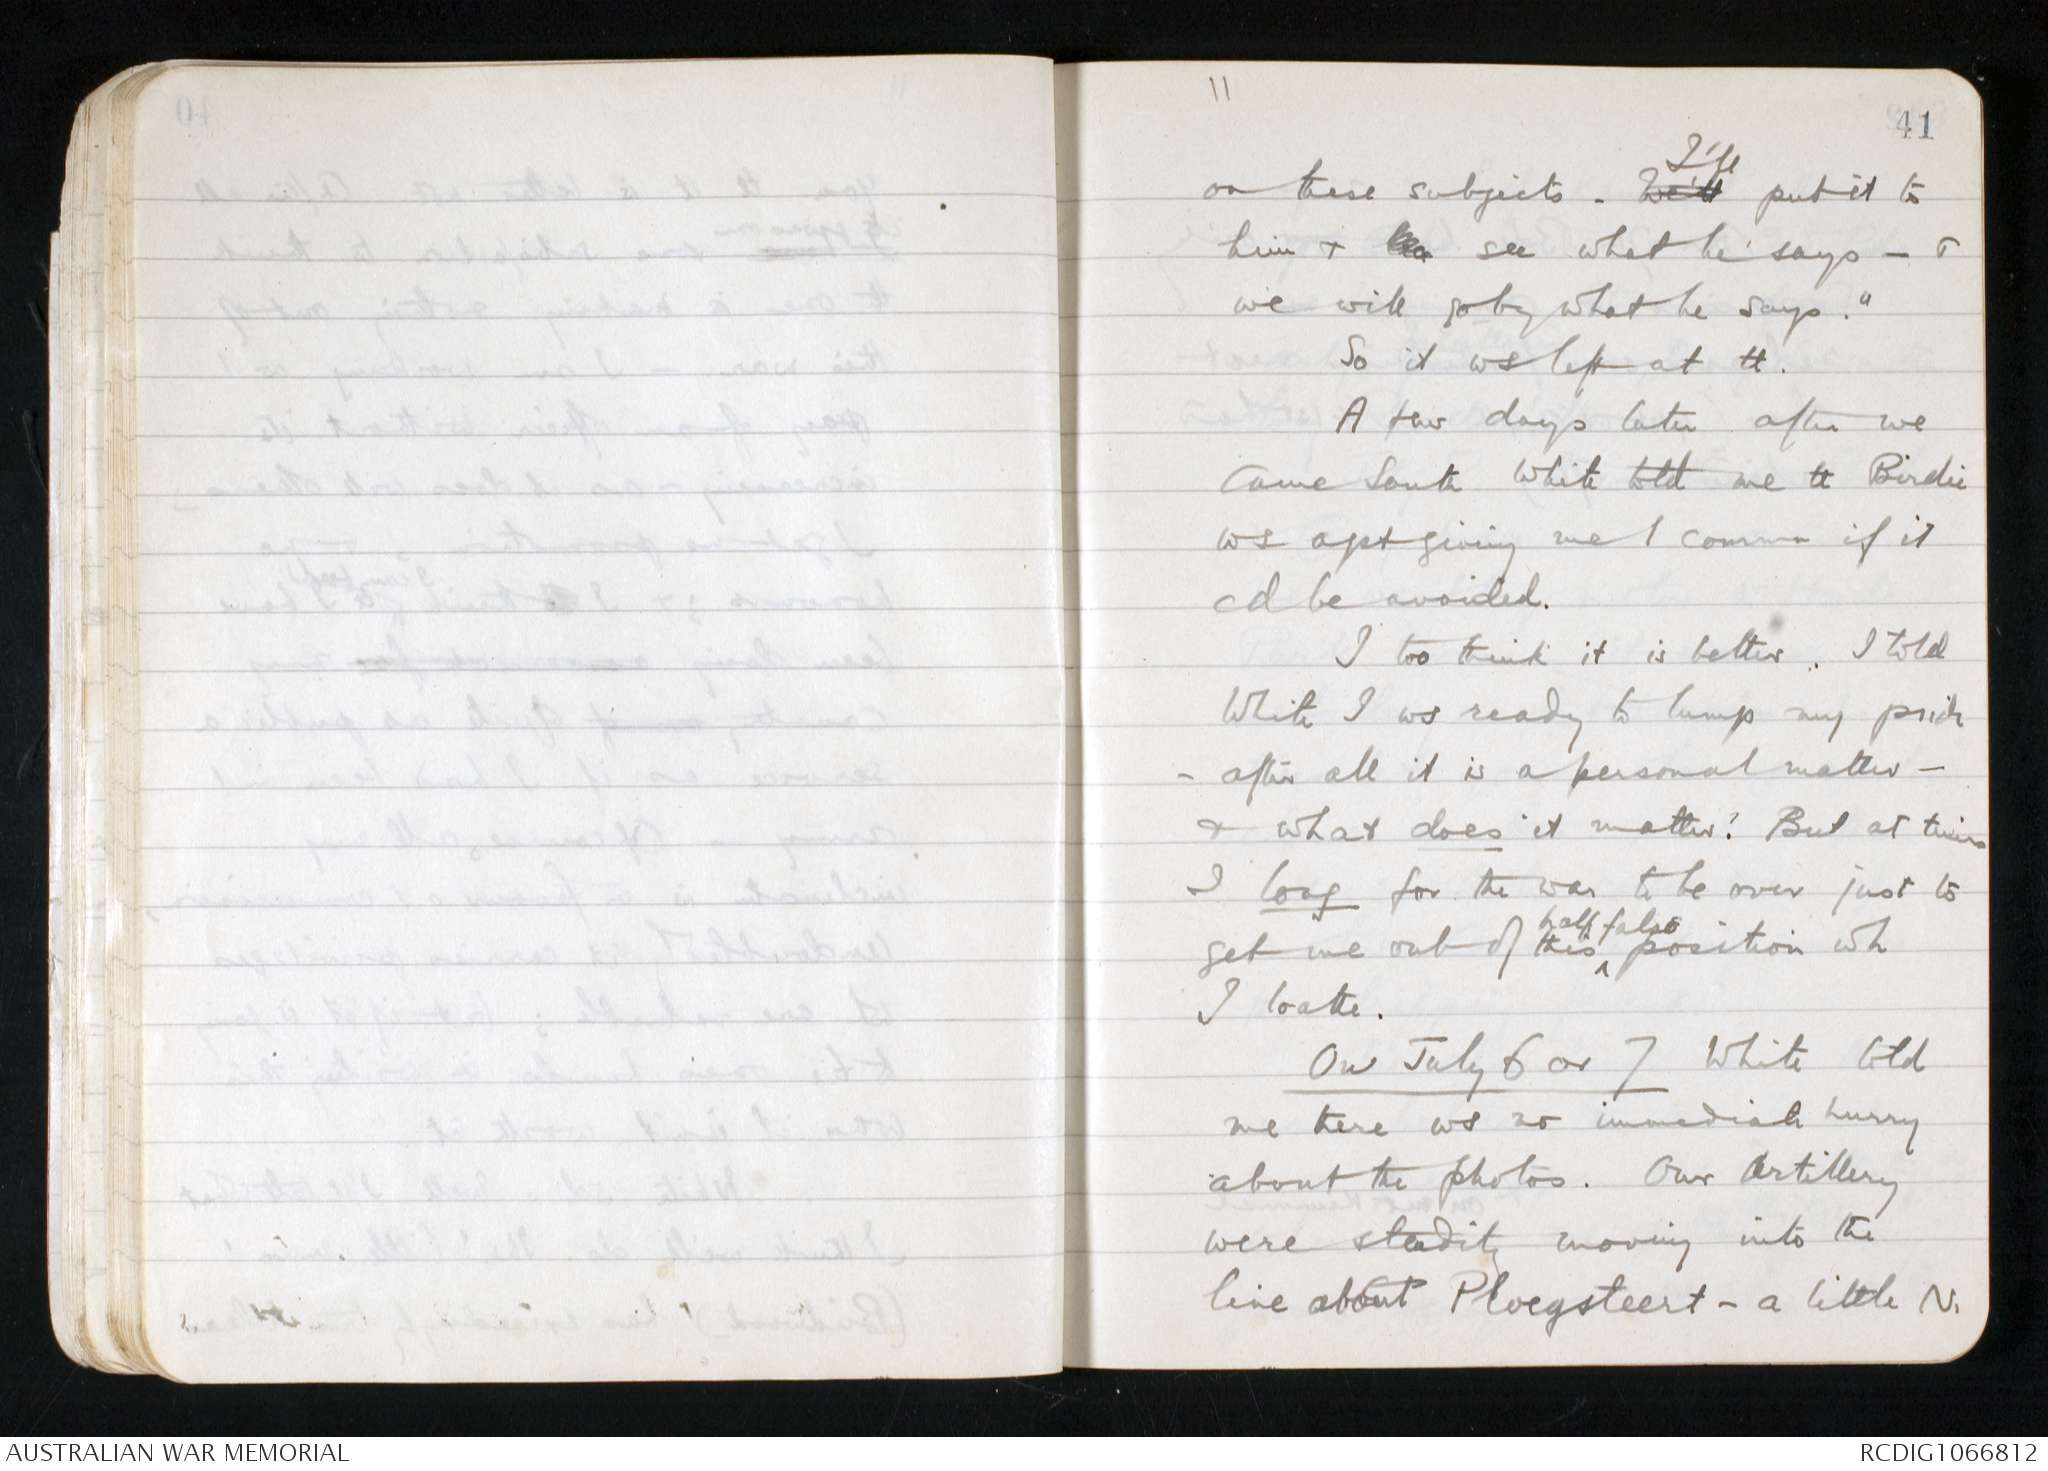 11
41
on these subjects - ~~We'll~~ I'll put it to
him & see what he says - &
we will go by what he says."
So it ws left at tt.
A few days later after we
came South White told me tt Birdie
ws agst giving me l commn if it
cd be avoided.
I too think it is better. I told
White I ws ready to lump my pride
- after all it is a personal matter -
& what does it matter? But at times
I long for the war to be over just to
get me out of this half false position wh
I loathe.
On July 6 or 7 White told
me there ws no immediate hurry
about the photos. Our Artillery
were steadily moving into the
line about Ploegsteert - a little N.
AUSTRALIAN WAR MEMORIAL
RCDIG1066812